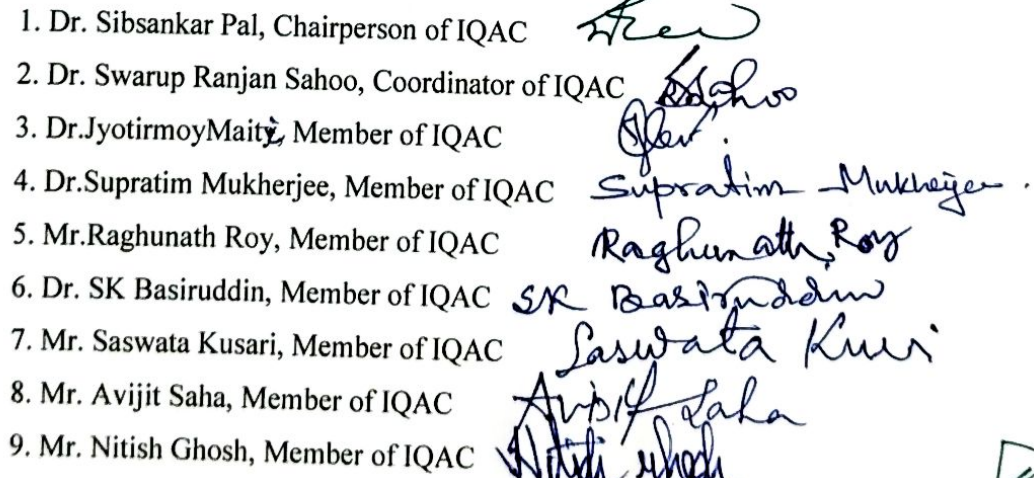 1. Dr. Sibsankar Pal, Chairperson of IQAC
2. Dr. Swarup Ranjan Sahoo, Coordinator of IQAC SRSahoo
3. Dr.JyotirmoyMaity, Member of IQAC
4. Dr.Supratim Mukherjee, Member of IQAC Supratim Mukherjee.
5. Mr.Raghunath Roy, Member of IQAC Raghunath Roy
6. Dr. SK Basiruddin, Member of IQAC SK Basiruddin
7. Mr. Saswata Kusari, Member of IQAC Saswata
8. Mr. Avijit Saha, Member of IQAC Avijit Saha
9. Mr. Nitish Ghosh, Member of IQAC Nitish Ghosh